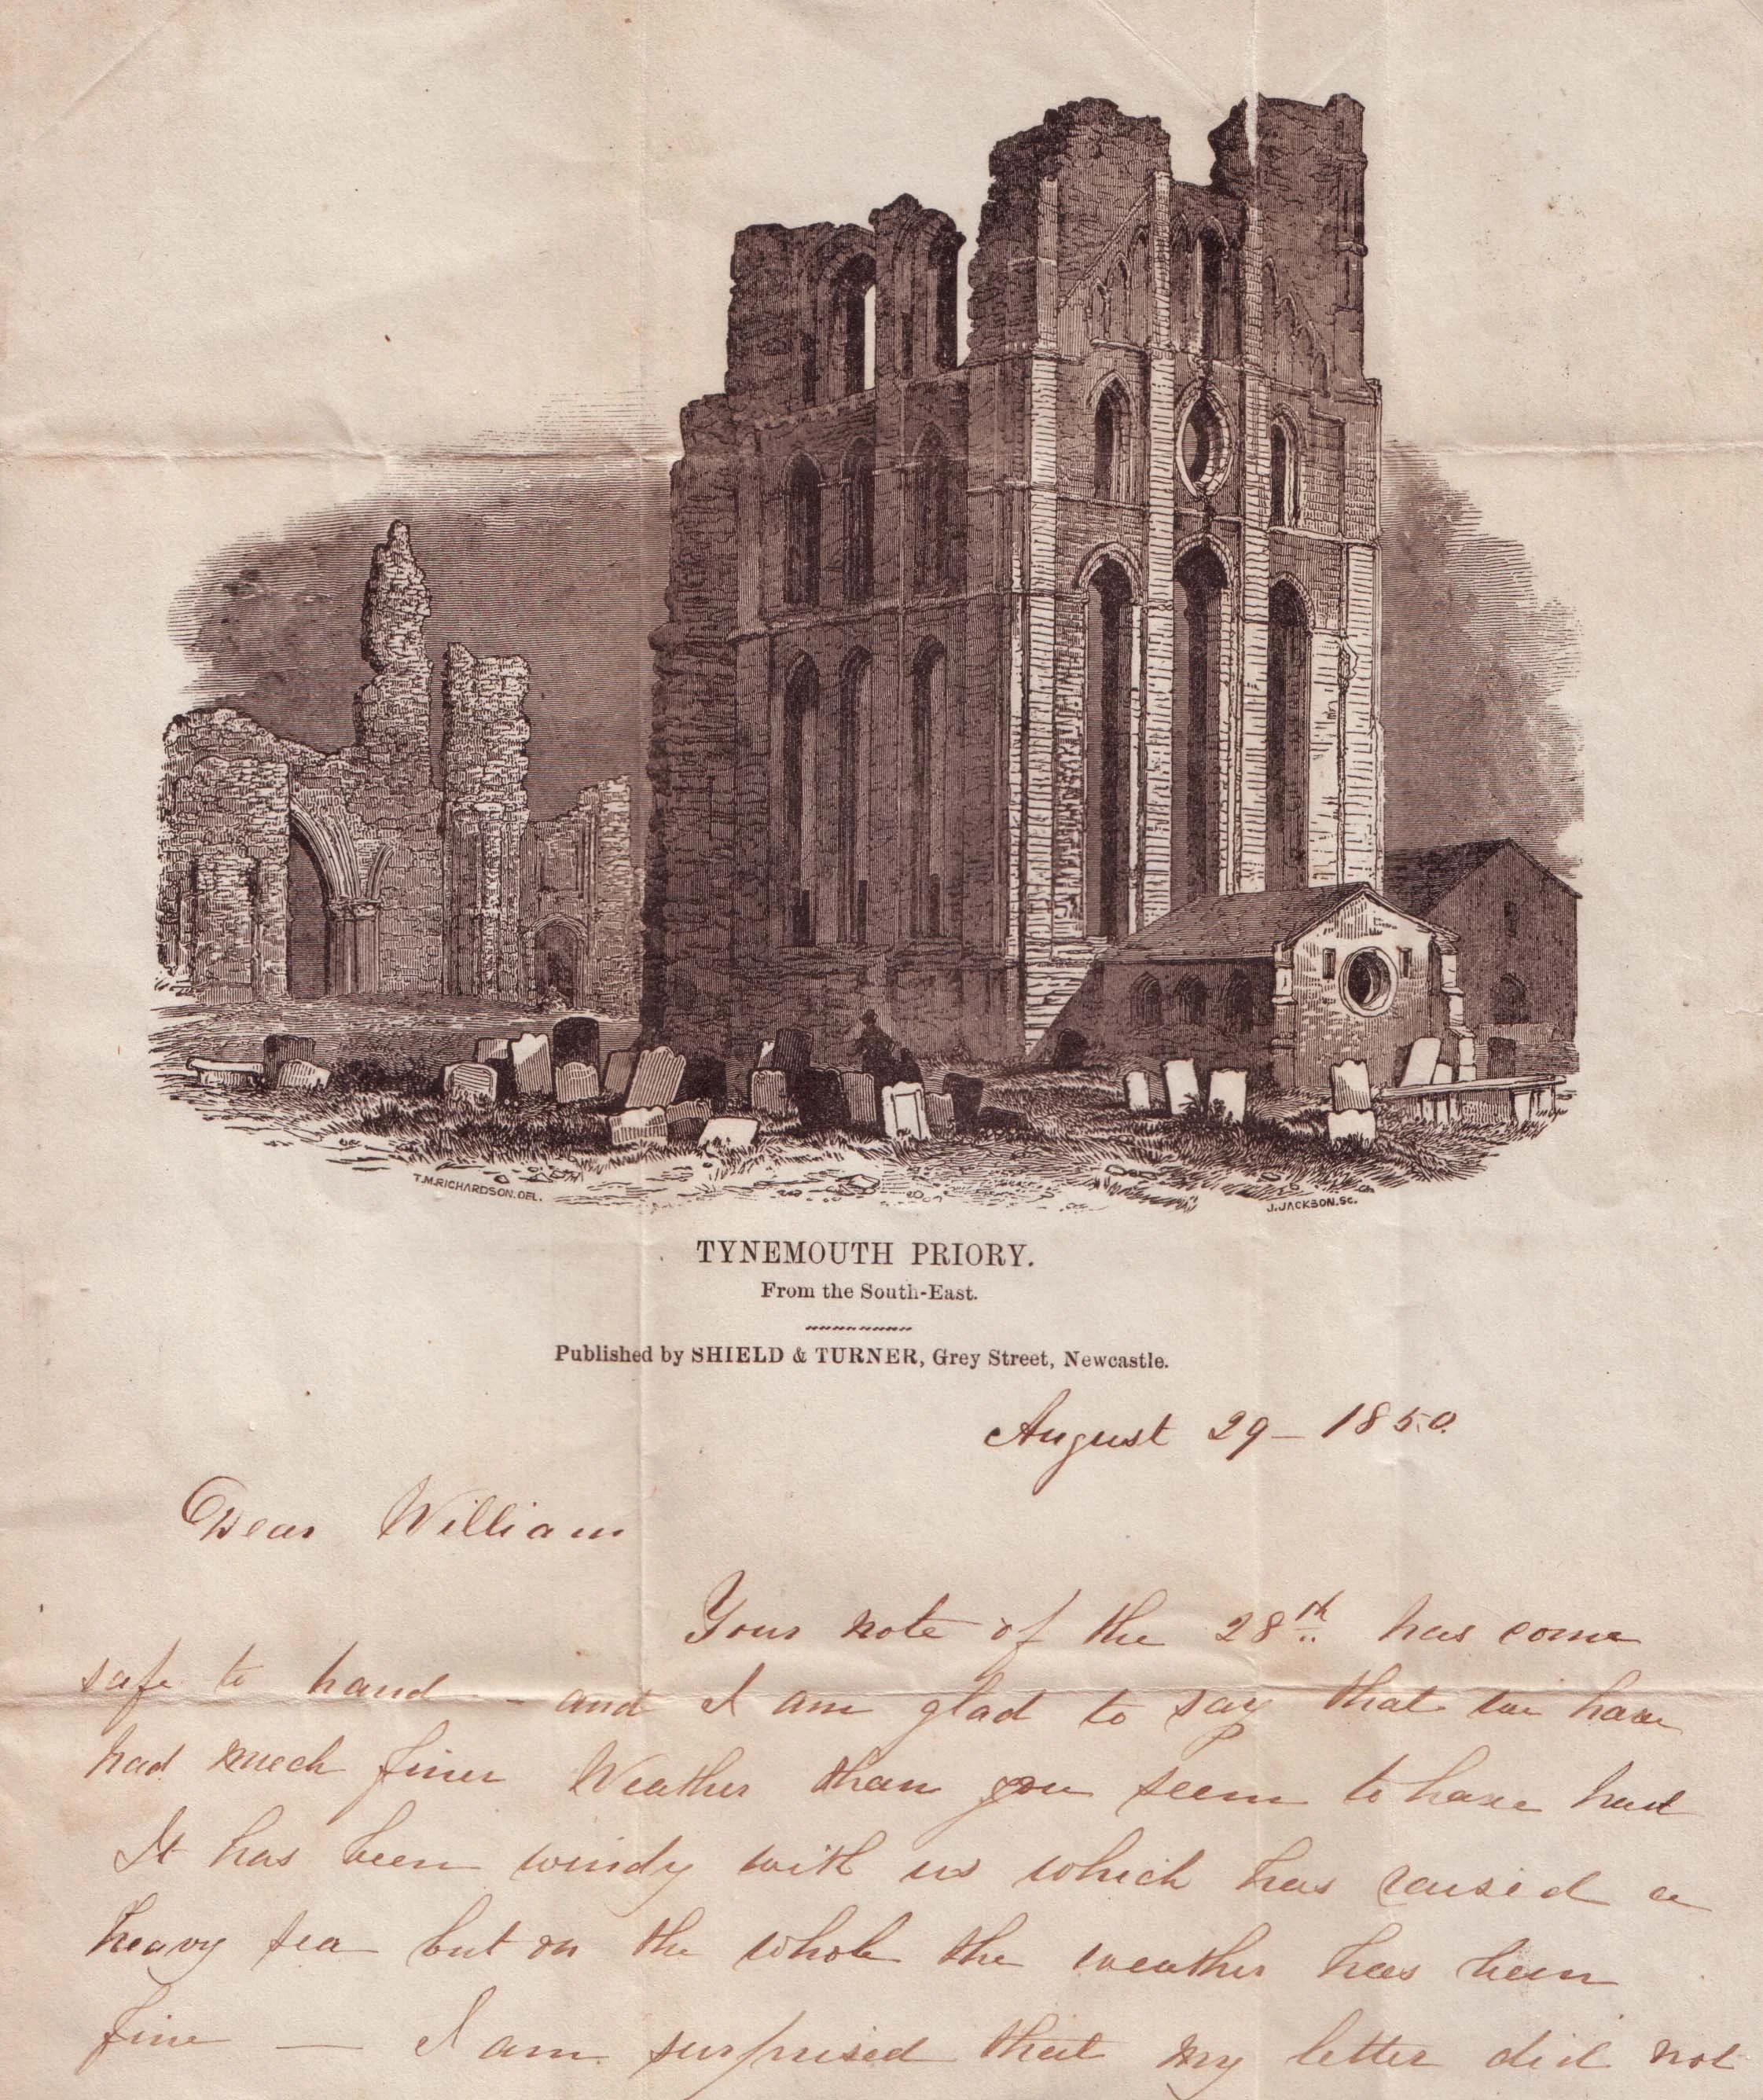 T.M.RICHARDSON.DEL.
J.JACKSON.SC.
TYNEMOUTH PRIORY.
From the South-East.
Published by SHIELD & TURNER, Grey Street, Newcastle.
August 29 – 1850.
Dear William
Your note of the 28th has come
safe to hand – and I am glad to say that we have
had much finer Weather than you seem to have had
It has been windy with us which has raised a
heavy sea but on the whole the weather has been
fine — I am surprised that my letter did not